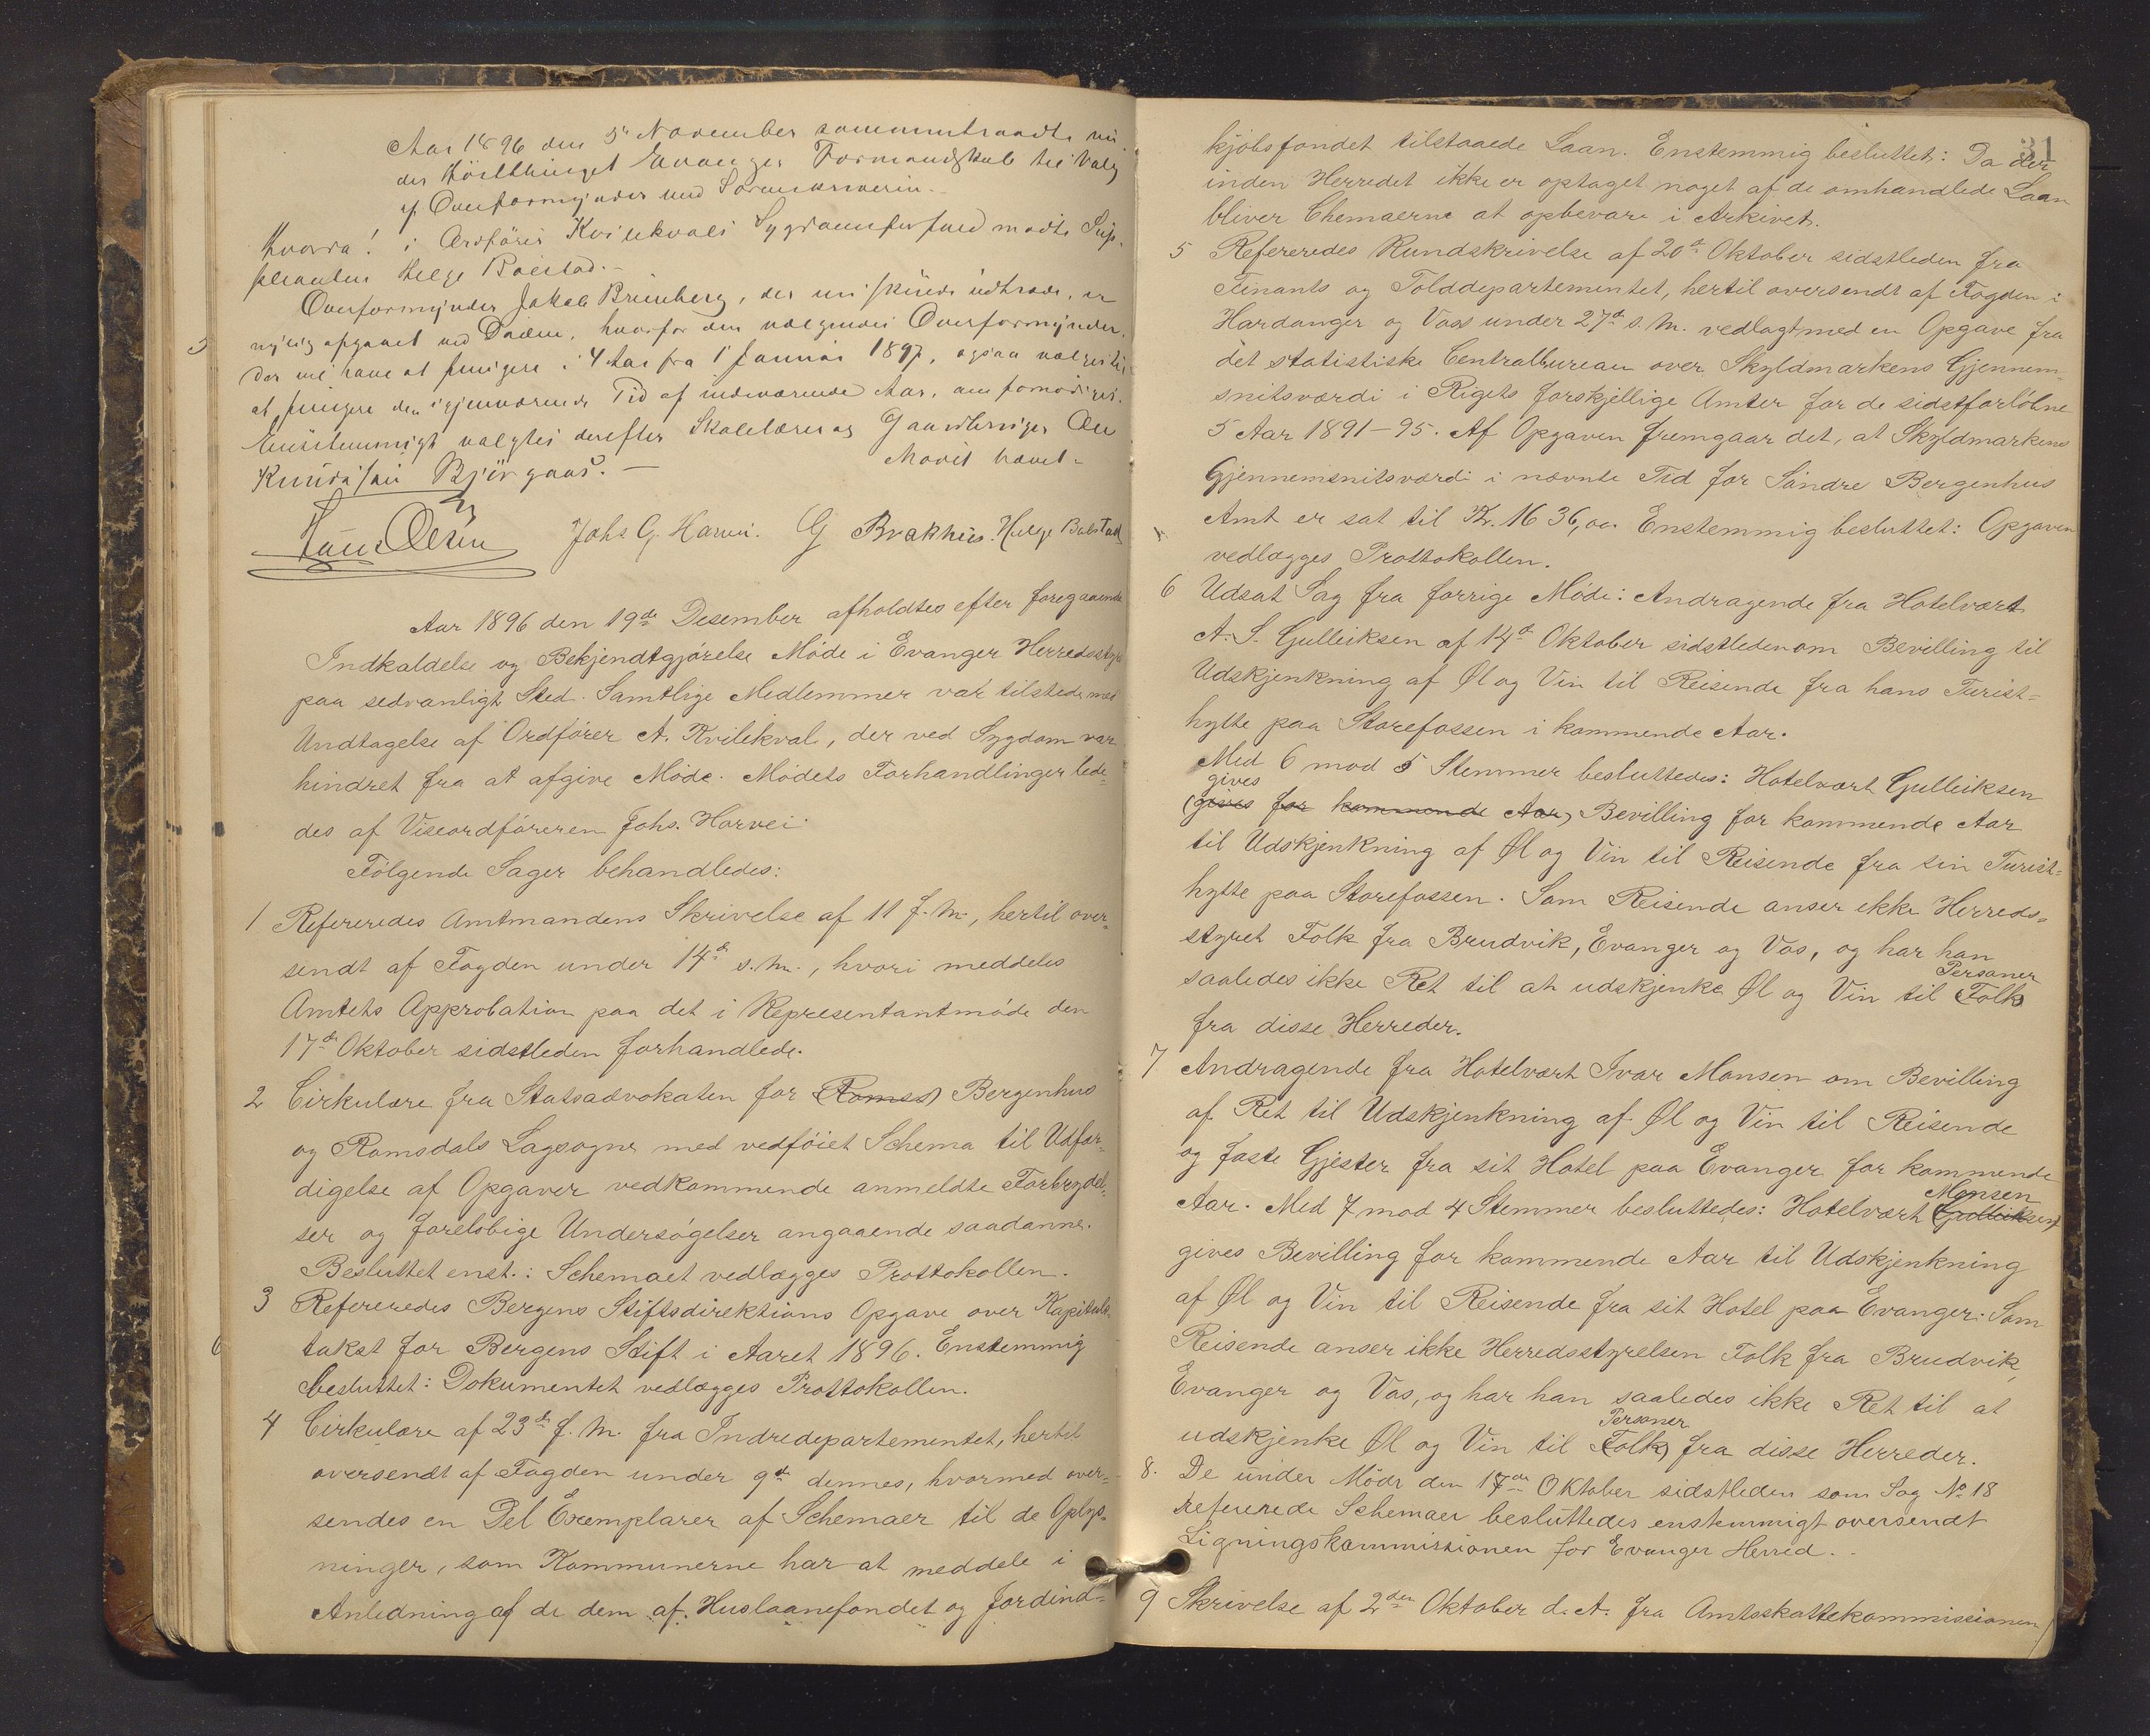 Aar 1896 den 5te November sammentraadte
Evanger Formandskab til Valg
af Overformynder ved Sorenskriveren.
Hvorda! i Ordfører Kvilekvals Sygdomsforfald mødte Sup-
pleanten Helge Bolstad.-
Overformynder Jakob Brunborg, der skulde udtræde, er
nylig afgaaet ved Døden, hvorfor den valgendes Overformynder,
der vil have at fungere i 4 Aar fra 1 Januar 1897, ogsaa valgtes til
at fungere den igjenværende Tid af indeværende Aar, om fornødiges.
Enstemmigt valgtes derefter Skolelærer og Gaardbruger
Knudssøn Bjørgaas. -
Mødet hævet-
Johs. G. Horvei. G Brakhus. Helge Bolstad
Aar 1896 den 19de Desember afholdtes efter foregaaende
Indkaldelse og Bekjendtgjørelse Møde i Evanger Herredsstyre
paa sedvanligt Sted. Samtlige Medlemmer var tilstede med
Undtagelse af Ordfører A. Kvilekval, der ved Sygdom var
hindret fra at afgive Møde. Mødets Forhandlinger lede-
des af Viseordføreren Johs. Horvei.
Følgende Sager behandledes:
1 Refereredes Amtmandens Skrivelse af 11 f. M., hertil over-
sendt af Fogden under 14de s. M., hvori meddeles
Amtets Approbation paa det i Representantmøde den
17de Oktober sidstleden forhandlede.
2 Cirkulære fra Statsadvokaten for (Romss) Bergenhus
og Romsdals Lagsogne med vedføiet Schema til Udfær-
digelse af Opgaver vedkommende anmeldte Forbrydel-
ser og foreløbige Undersøgelser angaaende saadanne.
Besluttet enst.: Schemaet vedlægges Prottokollen.
3 Refereredes Bergens Stiftsdirektions Opgave over Kapitels-
takst for Bergens Stift i Aaret 1896. Enstemmig
besluttet: Dokumentet vedlægges Prottokollen.
4 Cirkulære af 23de f. M. fra Indredepartementet, hertil
oversendt af Fogden under 9de dennes, hvormed over-
sendes en Del Exemplarer af Schemaer til de Oplys-
ninger, som Kommunerne har at meddele i
Anledning af de dem af Huslaanefondet og Jordind-
31
kjøbsfondet tilstaaede Laan. Enstemmig besluttet: Da der
inden Herredet ikke er optaget noget af de omhandlede Laan
bliver Chemaerne at opbevare i Arkivet.
5 Refereredes Rundskrivelse af 20de Oktober sidstleden fra
Finants og Tolddepartementet, hertil oversendt af Fogden i
Hardanger og Voss under 27de s. M. vedlagt med en Opgave fra
det statistiske Centralbureau over Skyldmarkens Gjennem-
snitsværdi i Rigets forskjellige Amter for de sidstforløbne
5 Aar 1891-95. Af Opgaven fremgaar det, at Skyldmarkens
Gjennemsnitsværdi i nævnte Tid for Søndre Bergenhus
Amt er sat til Kr. 1636,00. Enstemmig besluttet: Opgaven
vedlægges Prottokollen.
6 Udsat Sag fra forrige Møde: Andragende fra Hotelvært
A. S. Gulleiksen af 14de Oktober sidstleden om Bevilling til
Udskjenkning af Øl og Vin til Reisende fra hans Turist-
hytte paa Storefossen i kommende Aar.
Med 6 mod 5 Stemmer besluttedes: Hotelvært Gulleiksen
gives
(gives for kommende Aar) Bevilling for kommende Aar
til Udskjenkning af Øl og Vin til Reisende fra sin Turist-
hytte paa Storefossen. Som Reisende anser ikke Herreds-
styret Folk fra Brudvik, Evanger og Vos, og har han
Personer
saaledes ikke Ret til at udskjenke Øl og Vin til (Folk)
fra disse Herreder.
7 Andragende fra Hotelvært Ivar Monsen om Bevilling
af Ret til Udskjenkning af Øl og Vin til Reisende
og faste Gjester fra sit Hotel paa Evanger for kommende
Monsen
Aar. Med 7 mod 4 Stemmer besluttedes: Hotelvært (Gulleiksen)
gives Bevilling for kommende Aar til Udskjenkning
af Øl og Vin til Reisende fra sit Hotel paa Evanger. Som
Reisende anser ikke Herredsstyrelsen Folk fra Brudvik,
Evanger og Vos, og har han saaledes ikke Ret til at
Personer
udskjenke Øl og Vin til (Folk) fra disse Herreder.
8. De under Møde den 17de Oktober sidstleden som Sag No 18
refererede Schemaer besluttedes enstemmigt oversendt
Ligningskommissionen for Evanger Herred.
9 Skrivelse af 2den Oktober d. A. fra Amtsskattekommissionen